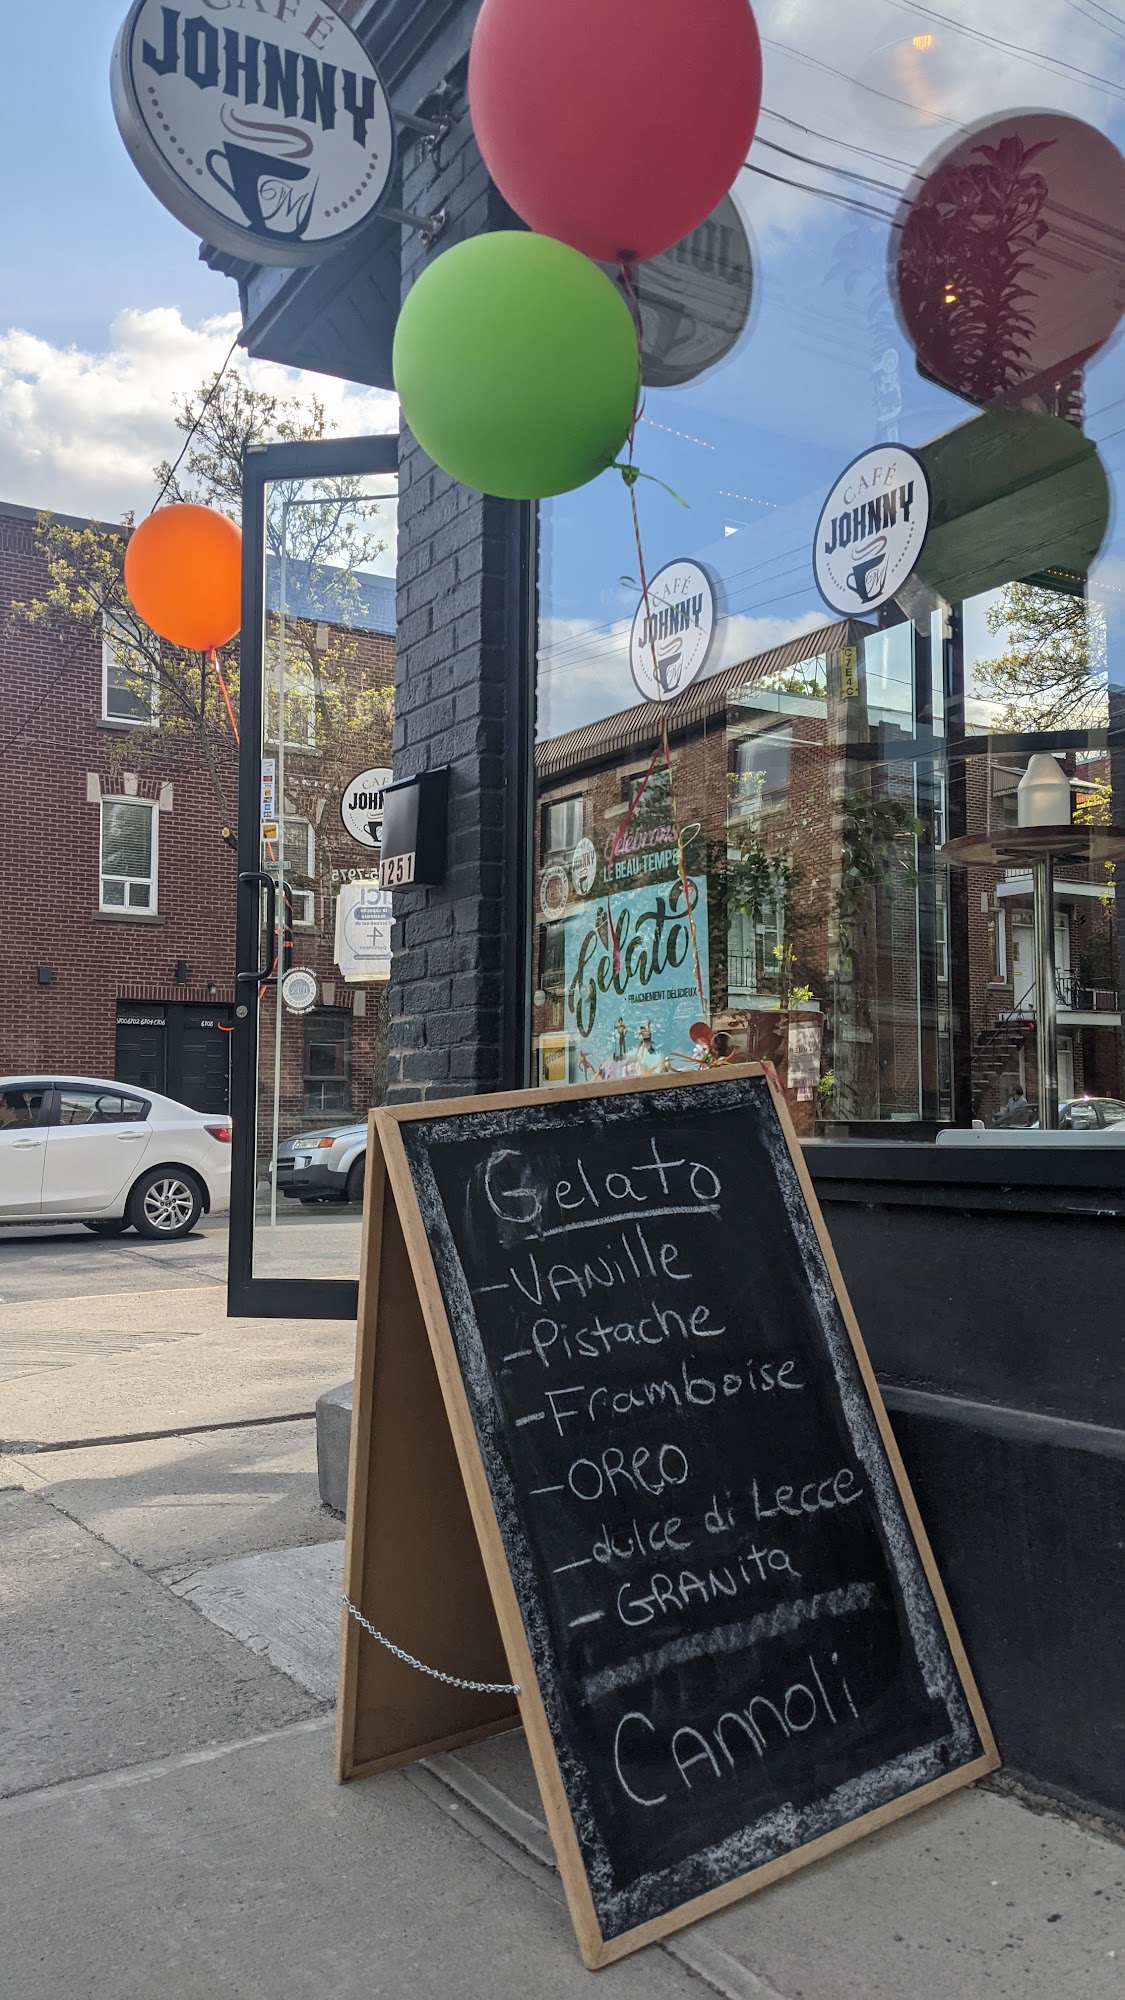 CAFÉ
JOHNNY
CM
CAFÉ
JOHNNY
CAFÉ
JOHNNY
1251
Célébrons
LE BEAU TEMPS
Gelato
• FRAÎCHEMENT DÉLICIEUX
6700 6702 6704 6706
6708
Gelato
-VANille
-Pistache
-Framboise
-OREO
-dulce di Lecce
-GRANita
CANNOLi